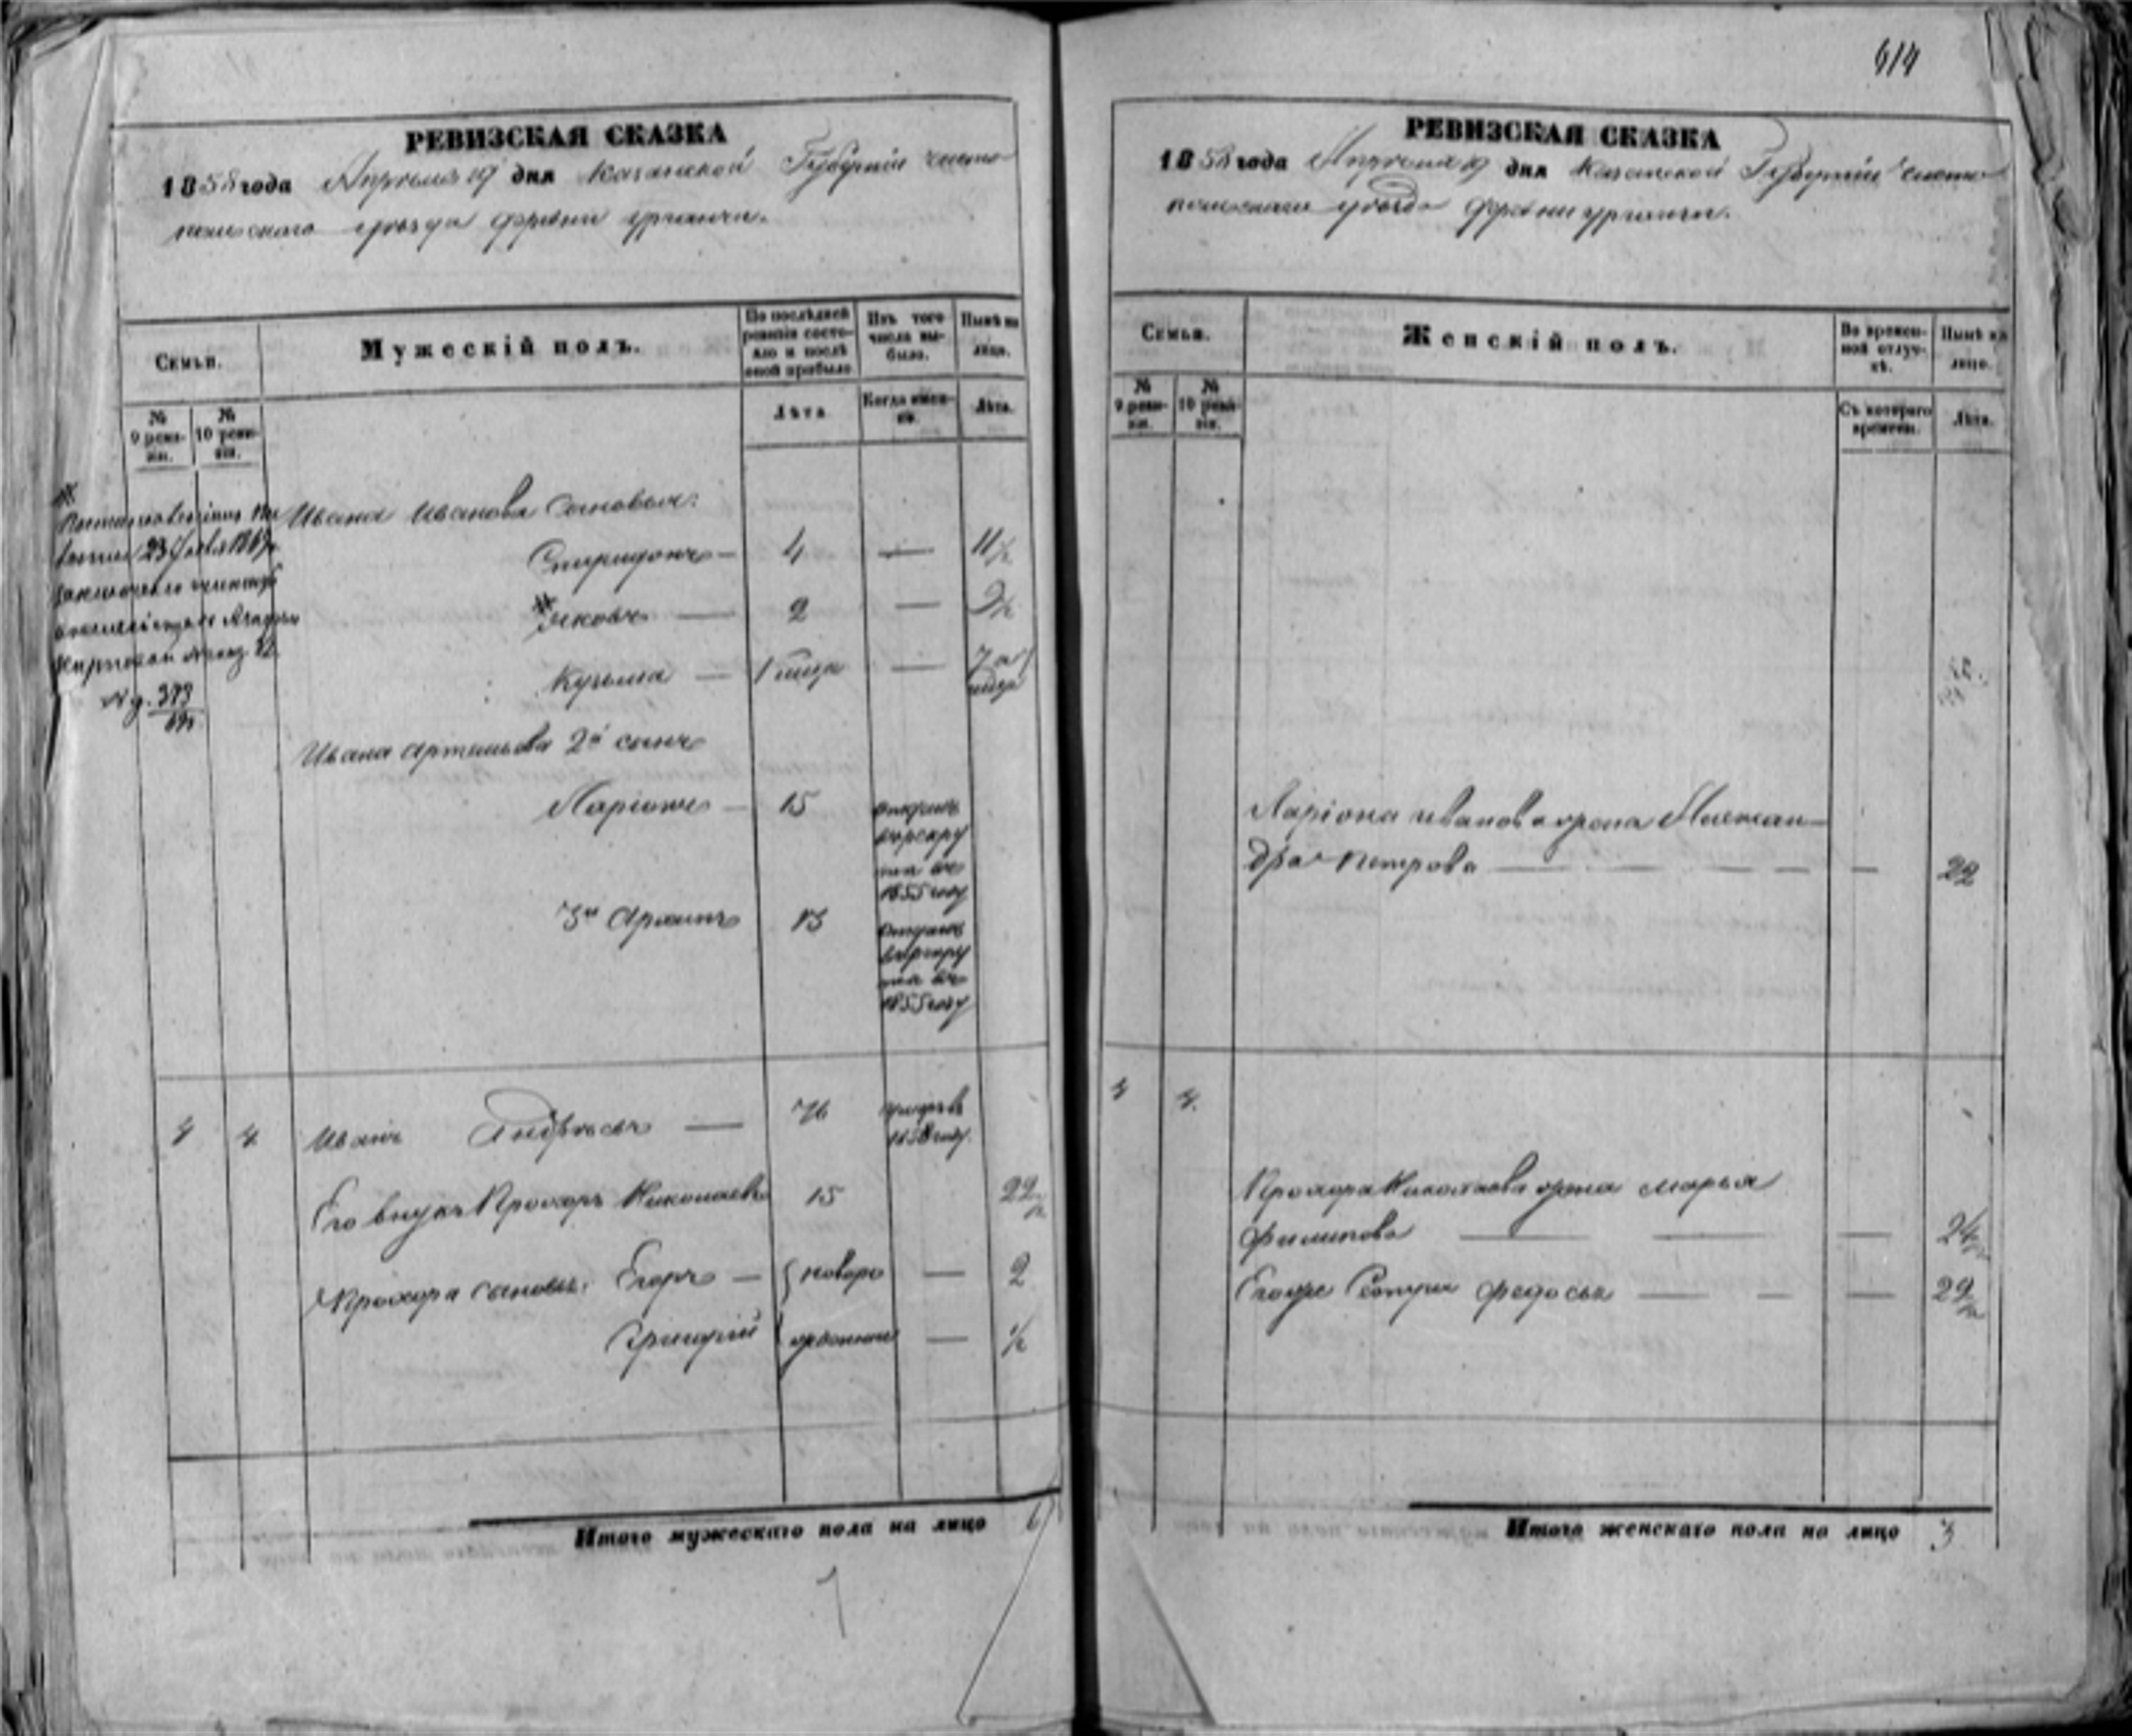 614
РЕВИЗСКАЯ СКАЗКА
1858 года Апреля 19 дня Казанской Губернии Чисто
польского уезда деревни
Семьи.
Мужескій полъ.
По послѣдней ревизіи состояло и послѣ оной прибыло
Изъ того числа выбыло.
Нынѣ на лицо.
№ 9 ревизіи.
№ 10 ревизіи.
Лѣта
Когда именно.
Лѣта.
Ивана Иванова сыновья:
Спиридонъ — 4 — 11½
Яковъ — 2 — 9½
Кузьма — 1 — 7
№ д. 373
Ивана Артемьева 2й сынъ
Ларіонъ — 15 отданъ
в рекру
ты въ
1855 году
3й Архипъ 13 отданъ
в рекру
ты въ
1855 году
4 4 Иванъ Андреевъ — 76 умеръ в
1858 году.
Его внукъ Прохоръ Николаевъ 15 22½
Прохора сыновья: Егоръ — новоро — 2
Григорій жденные — ½
Итого мужескаго пола на лицо 6
7
РЕВИЗСКАЯ СКАЗКА
1858 года Апреля 19 дня Казанской Губернии Чисто
польского уезда деревни
Семьи.
Женскій полъ.
Во временной отлучкѣ.
Нынѣ на лицо.
№ 9 ревизіи.
№ 10 ревизіи.
Съ котораго времени.
Лѣта.
Ларіона Иванова жена Алексан-
дра Петрова — — 22
4 4.
Прохора Николаева жена Марья
Филипова — — 24½
Егоже сестра Федосья — — 29½
Итого женскаго пола на лицо 3